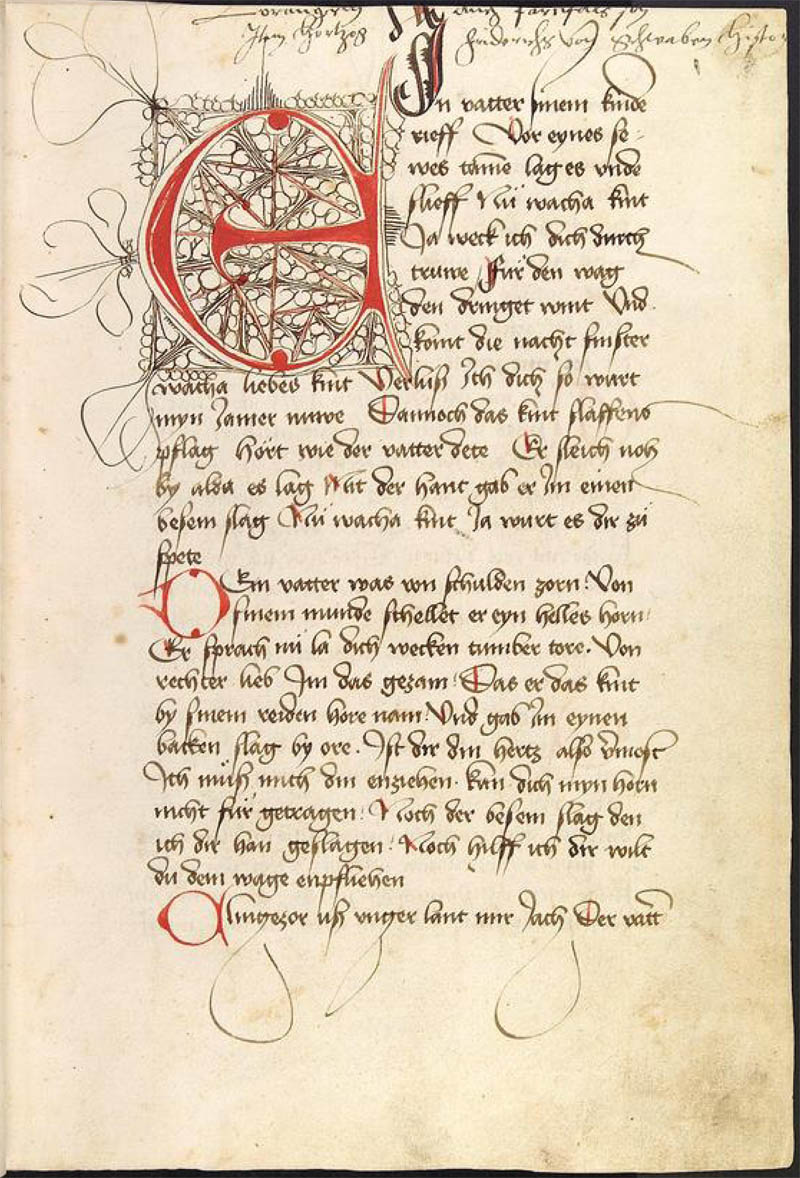 Lorengrin auch parcifals son
Item Hertzog Friderichs von Schwaben Histo
In vatter sinem kinde
rieff Vor eynes se-
wes tāme lag es vnde
slieff Nü wacha kint
Ja weck ich dich durch
truwe Für den wag
den dringet wint Vnd
komt die nacht finster
wacha liebes kint Verlüß Ich dich so wirt
myn Jamer nuwe Dannoch das kint slaffens
pflag hört wie der vatter dete Er sleich noh
by alda es lag Mit der hant gab er Im einen
besem slag Nü wacha kint Ja wirt es dir zü
spete
Ein vatter was von schulden zorn Von
sinem munde schellet er eyn helles horn
Er sprach nü la dich wecken tumber tore Von
rechter lieb Im das gezam Das er das kint
by sinem reiden hore nam Vnd gab Im eynen
backen slag by ore Ist dir din hertz also v̄most
Ich müß mich din enziehen kan dich myn horn
nicht für getragen Noch der besem slag den
ich dir han geslagen Noch hilff ich dir wilt
du dem wage enpfliehen
Clingezor uß vnger lant mir Jach Der vatt